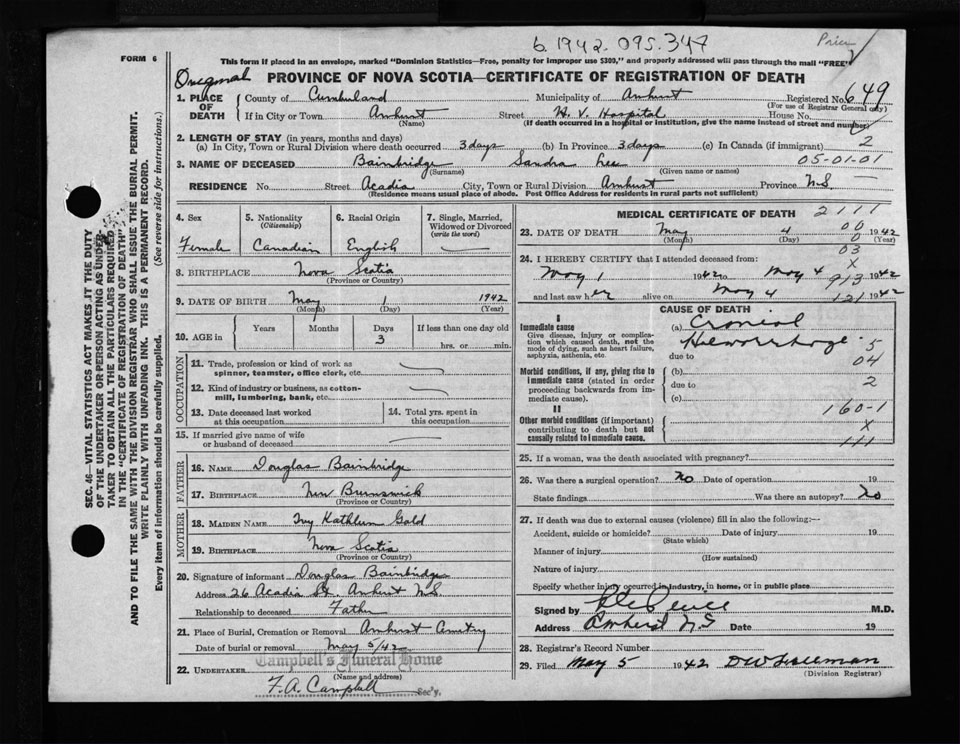 6 1942. 095. 347
Price
FORM 6
This form if placed in an envelope, marked "Dominion Statistics—Free, penalty for improper use $300," and properly addressed will pass through the mail "FREE"
Original
PROVINCE OF NOVA SCOTIA—CERTIFICATE OF REGISTRATION OF DEATH
1. PLACE OF DEATH County of Cumberland Municipality of Amherst Registered No. 649
(For use of Registrar General only)
If in City or Town Amherst Street H. V. Hospital House No.
(Name) (If death occurred in a hospital or institution, give the name instead of street and number)
2. LENGTH OF STAY (in years, months and days) 2
(a) In City, Town or Rural Division where death occurred 3 days (b) In Province 3 days (c) In Canada (if immigrant)
3. NAME OF DECEASED Bainbridge Sandra Lee 05-01-01
(Surname) (Given name or names)
RESIDENCE No. Street Acadia City, Town or Rural Division Amherst Province N.S.
(Residence means usual place of abode. Post Office Address for residents in rural parts not sufficient)
4. Sex 5. Nationality (Citizenship) 6. Racial Origin 7. Single, Married, Widowed or Divorced (write the word)
Female Canadian English
8. BIRTHPLACE Nova Scotia
(Province or Country)
9. DATE OF BIRTH May 1 1942
(Month) (Day) (Year)
10. AGE in Years Months Days If less than one day old
3 hrs. or min.
OCCUPATION
11. Trade, profession or kind of work as spinner, teamster, office clerk, etc.
12. Kind of industry or business, as cotton-mill, lumbering, bank, etc.
13. Date deceased last worked at this occupation 14. Total yrs. spent in this occupation
15. If married give name of wife or husband of deceased
FATHER
16. NAME Douglas Bainbridge
17. BIRTHPLACE New Brunswick
(Province or Country)
MOTHER
18. MAIDEN NAME Ivy Kathleen Gold
19. BIRTHPLACE Nova Scotia
(Province or Country)
20. Signature of informant Douglas Bainbridge
Address 26 Acadia St. Amherst N.S.
Relationship to deceased Father
21. Place of Burial, Cremation or Removal Amherst
Date of burial or removal May 5/42
Campbell's Funeral Home
22. UNDERTAKER (Name and address)
F. A. Campbell Sec'y.
MEDICAL CERTIFICATE OF DEATH 2111
00
23. DATE OF DEATH May 4 1942
(Month) (Day) (Year)
0
03
24. I HEREBY CERTIFY that I attended deceased from:
X
May 1 1942 to May 4 1942
913
and last saw her alive on May 4 1942
121
CAUSE OF DEATH
I
Immediate cause (a) Cranial
Give disease, injury or complication which caused death, not the mode of dying, such as heart failure, asphyxia, asthenia, etc.
Haemorrhage 5
due to 04
Morbid conditions, if any, giving rise to immediate cause (stated in order proceeding backwards from immediate cause).
(b)
due to 2
(c)
II 160-1
Other morbid conditions (if important) contributing to death but not causally related to immediate cause.
X
111
25. If a woman, was the death associated with pregnancy?
26. Was there a surgical operation? No Date of operation 19
State findings Was there an autopsy? No
27. If death was due to external causes (violence) fill in also the following:—
Accident, suicide or homicide? Date of injury 19
(State which)
Manner of injury
(How sustained)
Nature of injury
Specify whether injury occurred in industry, in home, or in public place
Signed by M.D.
Address Amherst N S Date 19
28. Registrar's Record Number
29. Filed May 5 1942
(Division Registrar)
SEC. 46—VITAL STATISTICS ACT MAKES IT THE DUTY
OF THE UNDERTAKER OR PERSON ACTING AS UNDER-
TAKER TO OBTAIN ALL THE PARTICULARS REQUIRED
IN THE "CERTIFICATE OF REGISTRATION OF DEATH"
AND TO FILE THE SAME WITH THE DIVISION REGISTRAR WHO SHALL ISSUE THE BURIAL PERMIT.
WRITE PLAINLY WITH UNFADING INK. THIS IS A PERMANENT RECORD.
Every item of information should be carefully supplied. (See reverse side for instructions.)